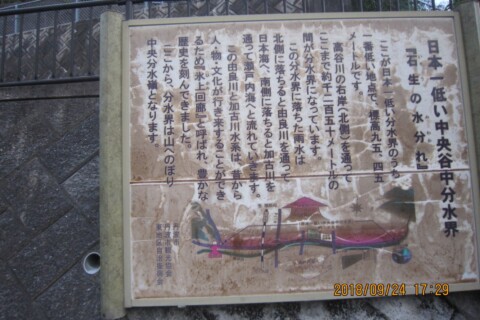 日本一低い中央谷中分水界
『石生の水分れ』
ここが日本一低い分水界のうち
一番低い地点で、標高九五、四五
メートルです。
高谷川の右岸(北側)を通って
ここまで約千二百五十メートルの
間が分水界になっています。
この分水界に落ちた雨水は
北側に落ちると由良川を通って
日本海へ、南側に落ちると加古川を
通って瀬戸内海へと流れていきます。
この由良川と加古川水系は、昔から
人・物・文化が行き来することができ
るため『氷上回廊』と呼ばれ、豊かな
歴史を刻んできました。
ここから、分水界は山へのぼり
中央分水嶺となります。
2018/09/24 17:29